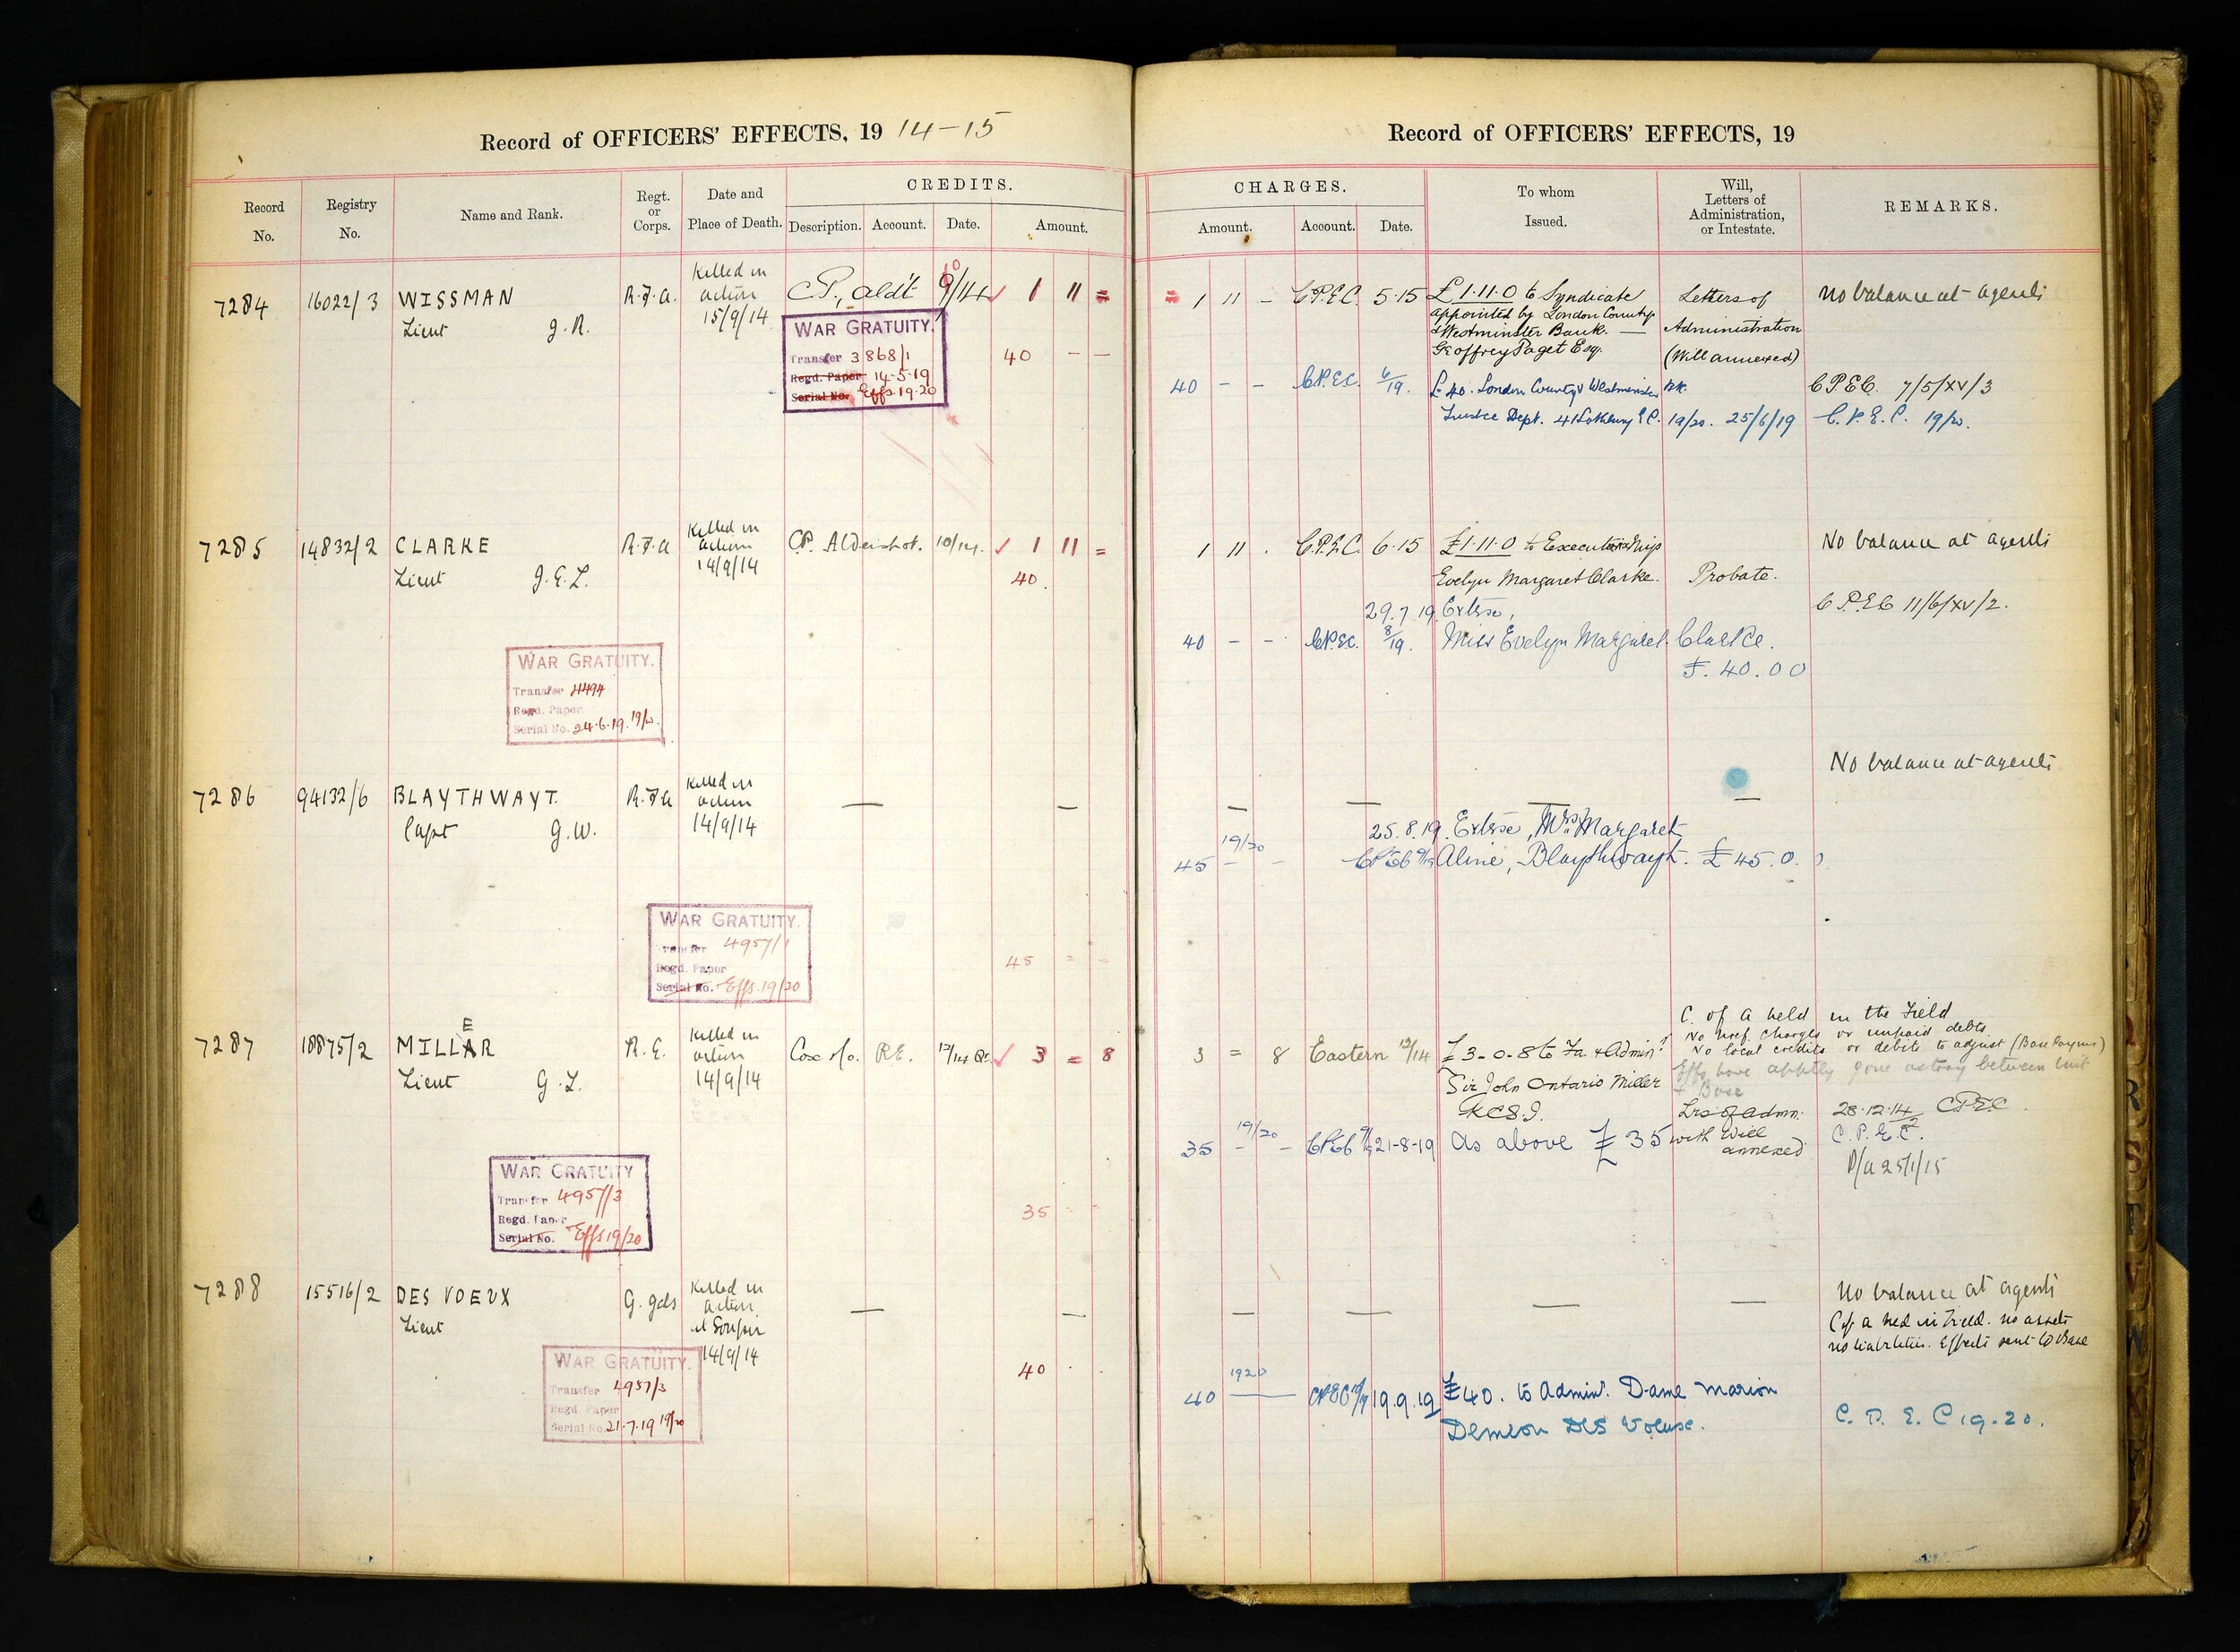 Record of OFFICERS' EFFECTS, 19 14-15
Record No.
Registry No.
Name and Rank.
Regt. or Corps.
Date and Place of Death.
CREDITS.
Description.
Account.
Date.
Amount.
7284 16022/3 WISSMAN R.F.A. Killed in action 15/9/14 C.P., Aldt 9/14 1 11 =
Lieut J.R.
WAR GRATUITY.
Transfer 3868/1
Regd. Paper 14-5-19
Serial No. Effs. 19.20
40 - -
7285 14832/2 CLARKE R.F.A Killed in action 14/9/14 C.P. Aldershot. 10/14. 1 11 =
Lieut J.E.L.
40
WAR GRATUITY.
Transfer 4494
Regd. Paper
Serial No. 24.6.19. 19/20.
7286 94132/6 BLAYTHWAYT. R.F.A Killed in action 14/9/14 — —
Capt G.W.
WAR GRATUITY.
Transfer 4957/1
Regd. Paper
Serial No. Effs. 19/20
45 = =
7287 18875/2 MILLAR E R.E. Killed in action 14/9/14 Cox & Co. R.E. 12/14 3 = 8
Lieut G.L.
WAR GRATUITY
Transfer 4957/3
Regd. Paper
Serial No. Effs 19/20
35 - -
7288 15516/2 DES VOEUX G. Gds Killed in action at Soupir 14/9/14 — —
Lieut
WAR GRATUITY.
Transfer 4957/3
Regd. Paper
Serial No. 21.7.19 19/20
40
Record of OFFICERS' EFFECTS, 19
CHARGES.
Amount.
Account.
Date.
To whom Issued.
Will, Letters of Administration, or Intestate.
REMARKS.
= 1 11 - C.P.E.C. 5.15 £1.11.0 to Syndicate Letters of No balance at agents
appointed by London County
& Westminster Bank. — Administration
Geoffrey Paget Esq. (Will annexed)
40 - - C.P.E.C. 6/19. £40. London County & Westminster Bk. C.P.E.C. 7/5/XV/3
Trustee Dept. 41 Lothbury E.C. 19/20. 25/6/19 C.P.E.C. 19/20.
1 11 . C.P.E.C. 6.15 £1.11.0 to Executorship No balance at agents
Evelyn Margaret Clarke. Probate.
29.7.19 Extrse, C.P.E.C 11/6/XV/2.
40 - - C.P.E.C. 8/19. Miss Evelyn Margaret Clarke.
£. 40.00
No balance at agents
— — — —
25.8.19. Extrse, Mrs Margaret
19/20
45 - - CPEC 9/19 Aline, Blaythwayt. £45.0.0
C. of A held in the Field
No pref. charges or unpaid debts.
3 = 8 Eastern 12/14 £3-0-8 to Fa. & Admin. No local credits or debits to adjust (Base Paymr)
Effs have apptly gone astray between Unit
Sir John Ontario Miller & Base
K.C.S.I. Lrs of Admn. 28.12.14 C.P.E.C
19/20
35 - - CPEC 9/19 21-8-19 as above £35 with Will annexed C.P.E.C.
P/A 25/1/15
— — — — No balance at agents
C of A held in Field. no assets
no liabilities. Effects sent to Base
1920
40 — CPEC 19.9.19 £40. to Admin. Dame Marion
Des Voeux. C.P.E.C 19-20.